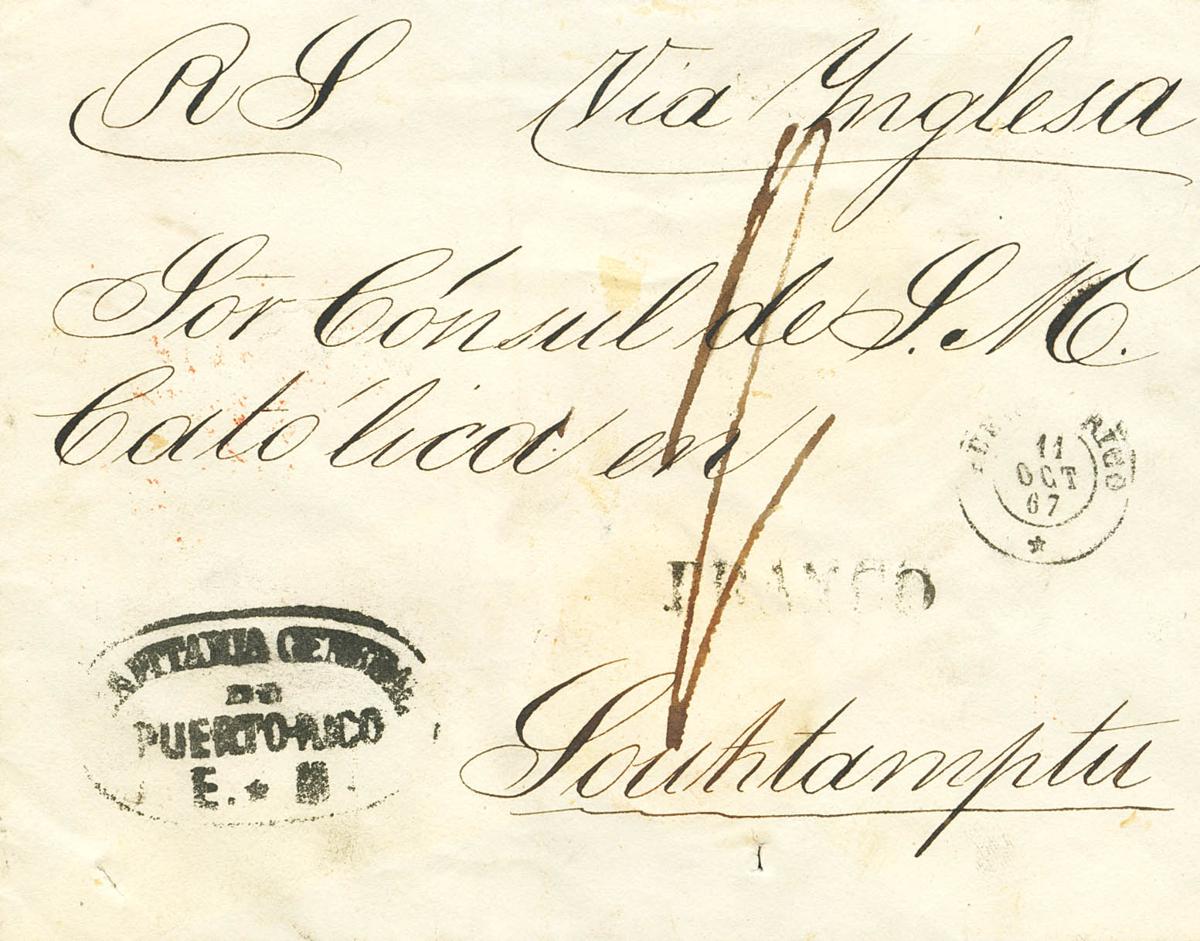 RS Via Ynglesa
Sor Cónsul de S. M.
Católica en
11
OCT
67
FRANCO
CAPITANIA GENERAL
DE
PUERTO-RICO
E. M
Southtamptu